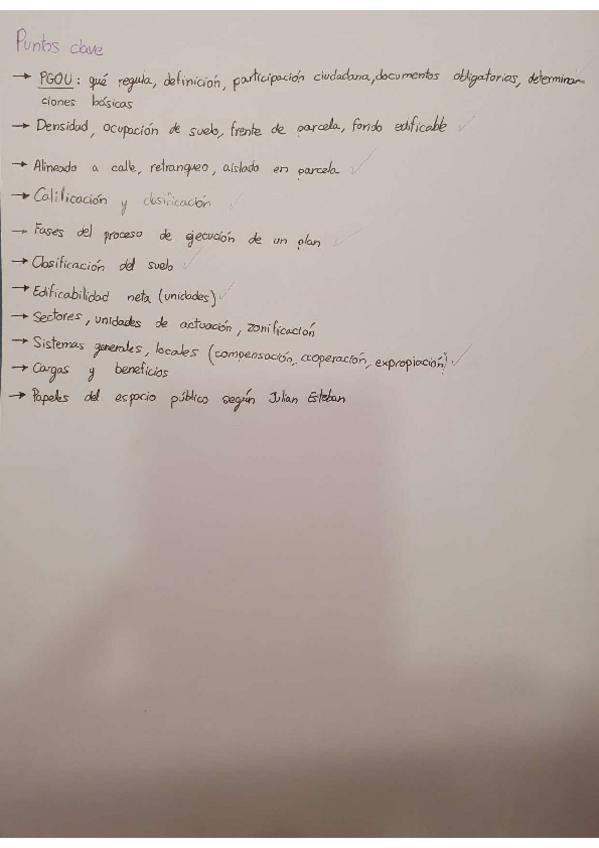 Puntos clave
→ PGOU: qué regula, definición, participación ciudadana, documentos obligatorios, determinan-
ciones básicas
→ Densidad, ocupación de suelo, frente de parcela, fondo edificable ✓
→ Alineado a calle, retranqueo, aislado en parcela ✓
→ Calificación y clasificación ✓
→ Fases del proceso de ejecución de un plan ✓
→ Clasificación del suelo ✓
→ Edificabilidad neta (unidades) ✓
→ Sectores, unidades de actuación, zonificación
→ Sistemas generales, locales (compensación, cooperación, expropiación) ✓
→ Cargas y beneficios
→ Papeles del espacio público según Julian Esteban